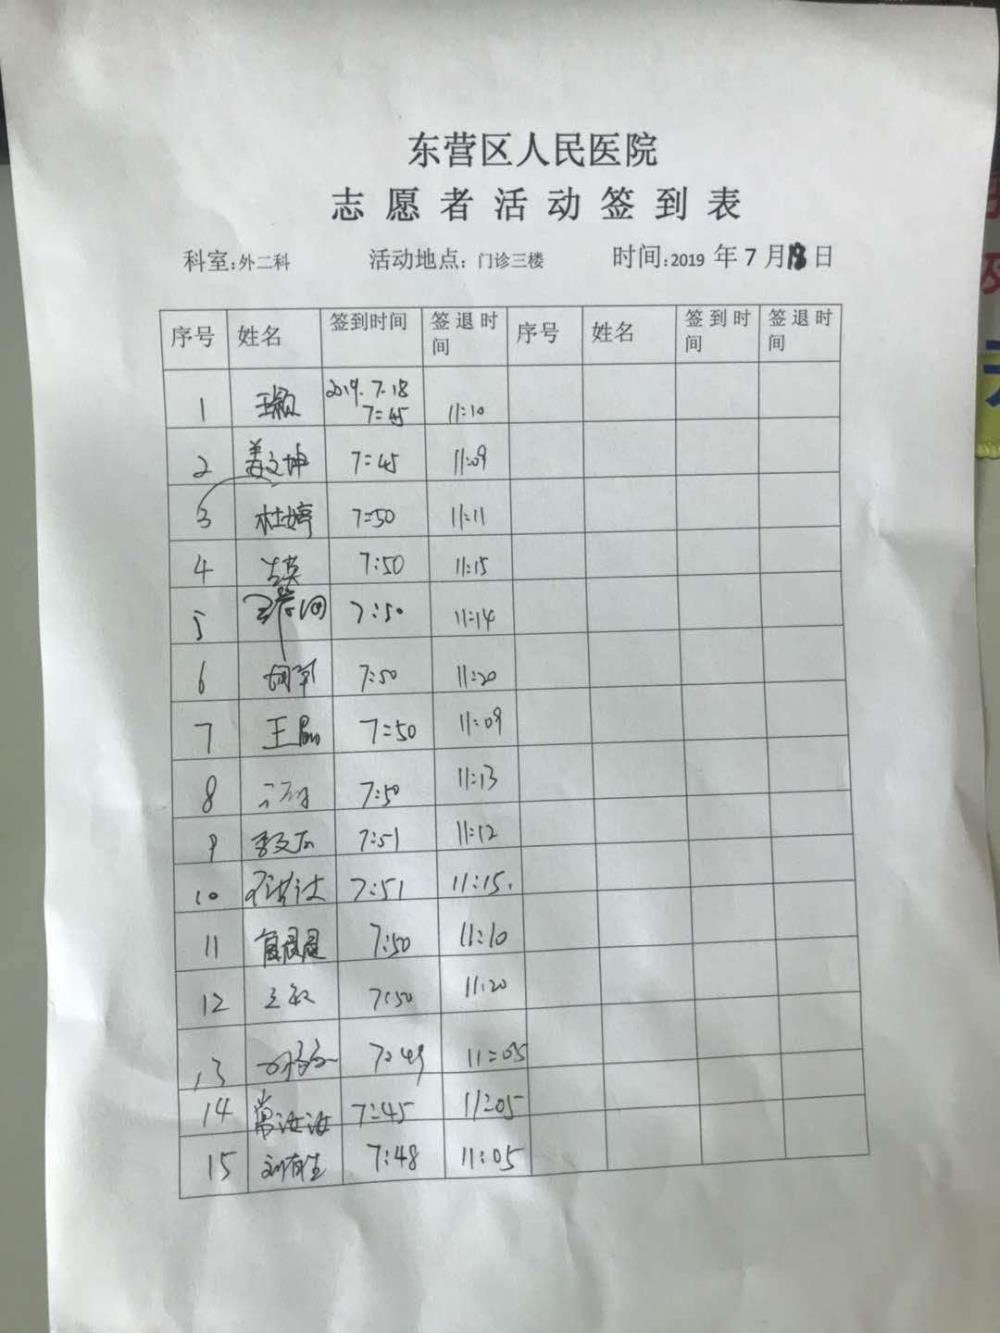 东营区人民医院
志愿者活动签到表
科室:外二科 活动地点: 门诊三楼 时间:2019 年 7 月18日
序号 姓名 签到时间 签退时间 序号 姓名 签到时间 签退时间
1 王颖 2019.7.18 7:45 11:10
2 姜文坤 7:45 11:09
3 杜婷 7:50 11:11
4 7:50 11:15
5 7:50 11:14
6 7:50 11:20
7 王晶 7:50 11:09
8 7:50 11:13
9 7:51 11:12
10 7:51 11:15.
11 7:50 11:10
12 王敏 7:50 11:20
13 7:49 11:05
14 常汝汝 7:45 11:05
15 刘有生 7:48 11:05